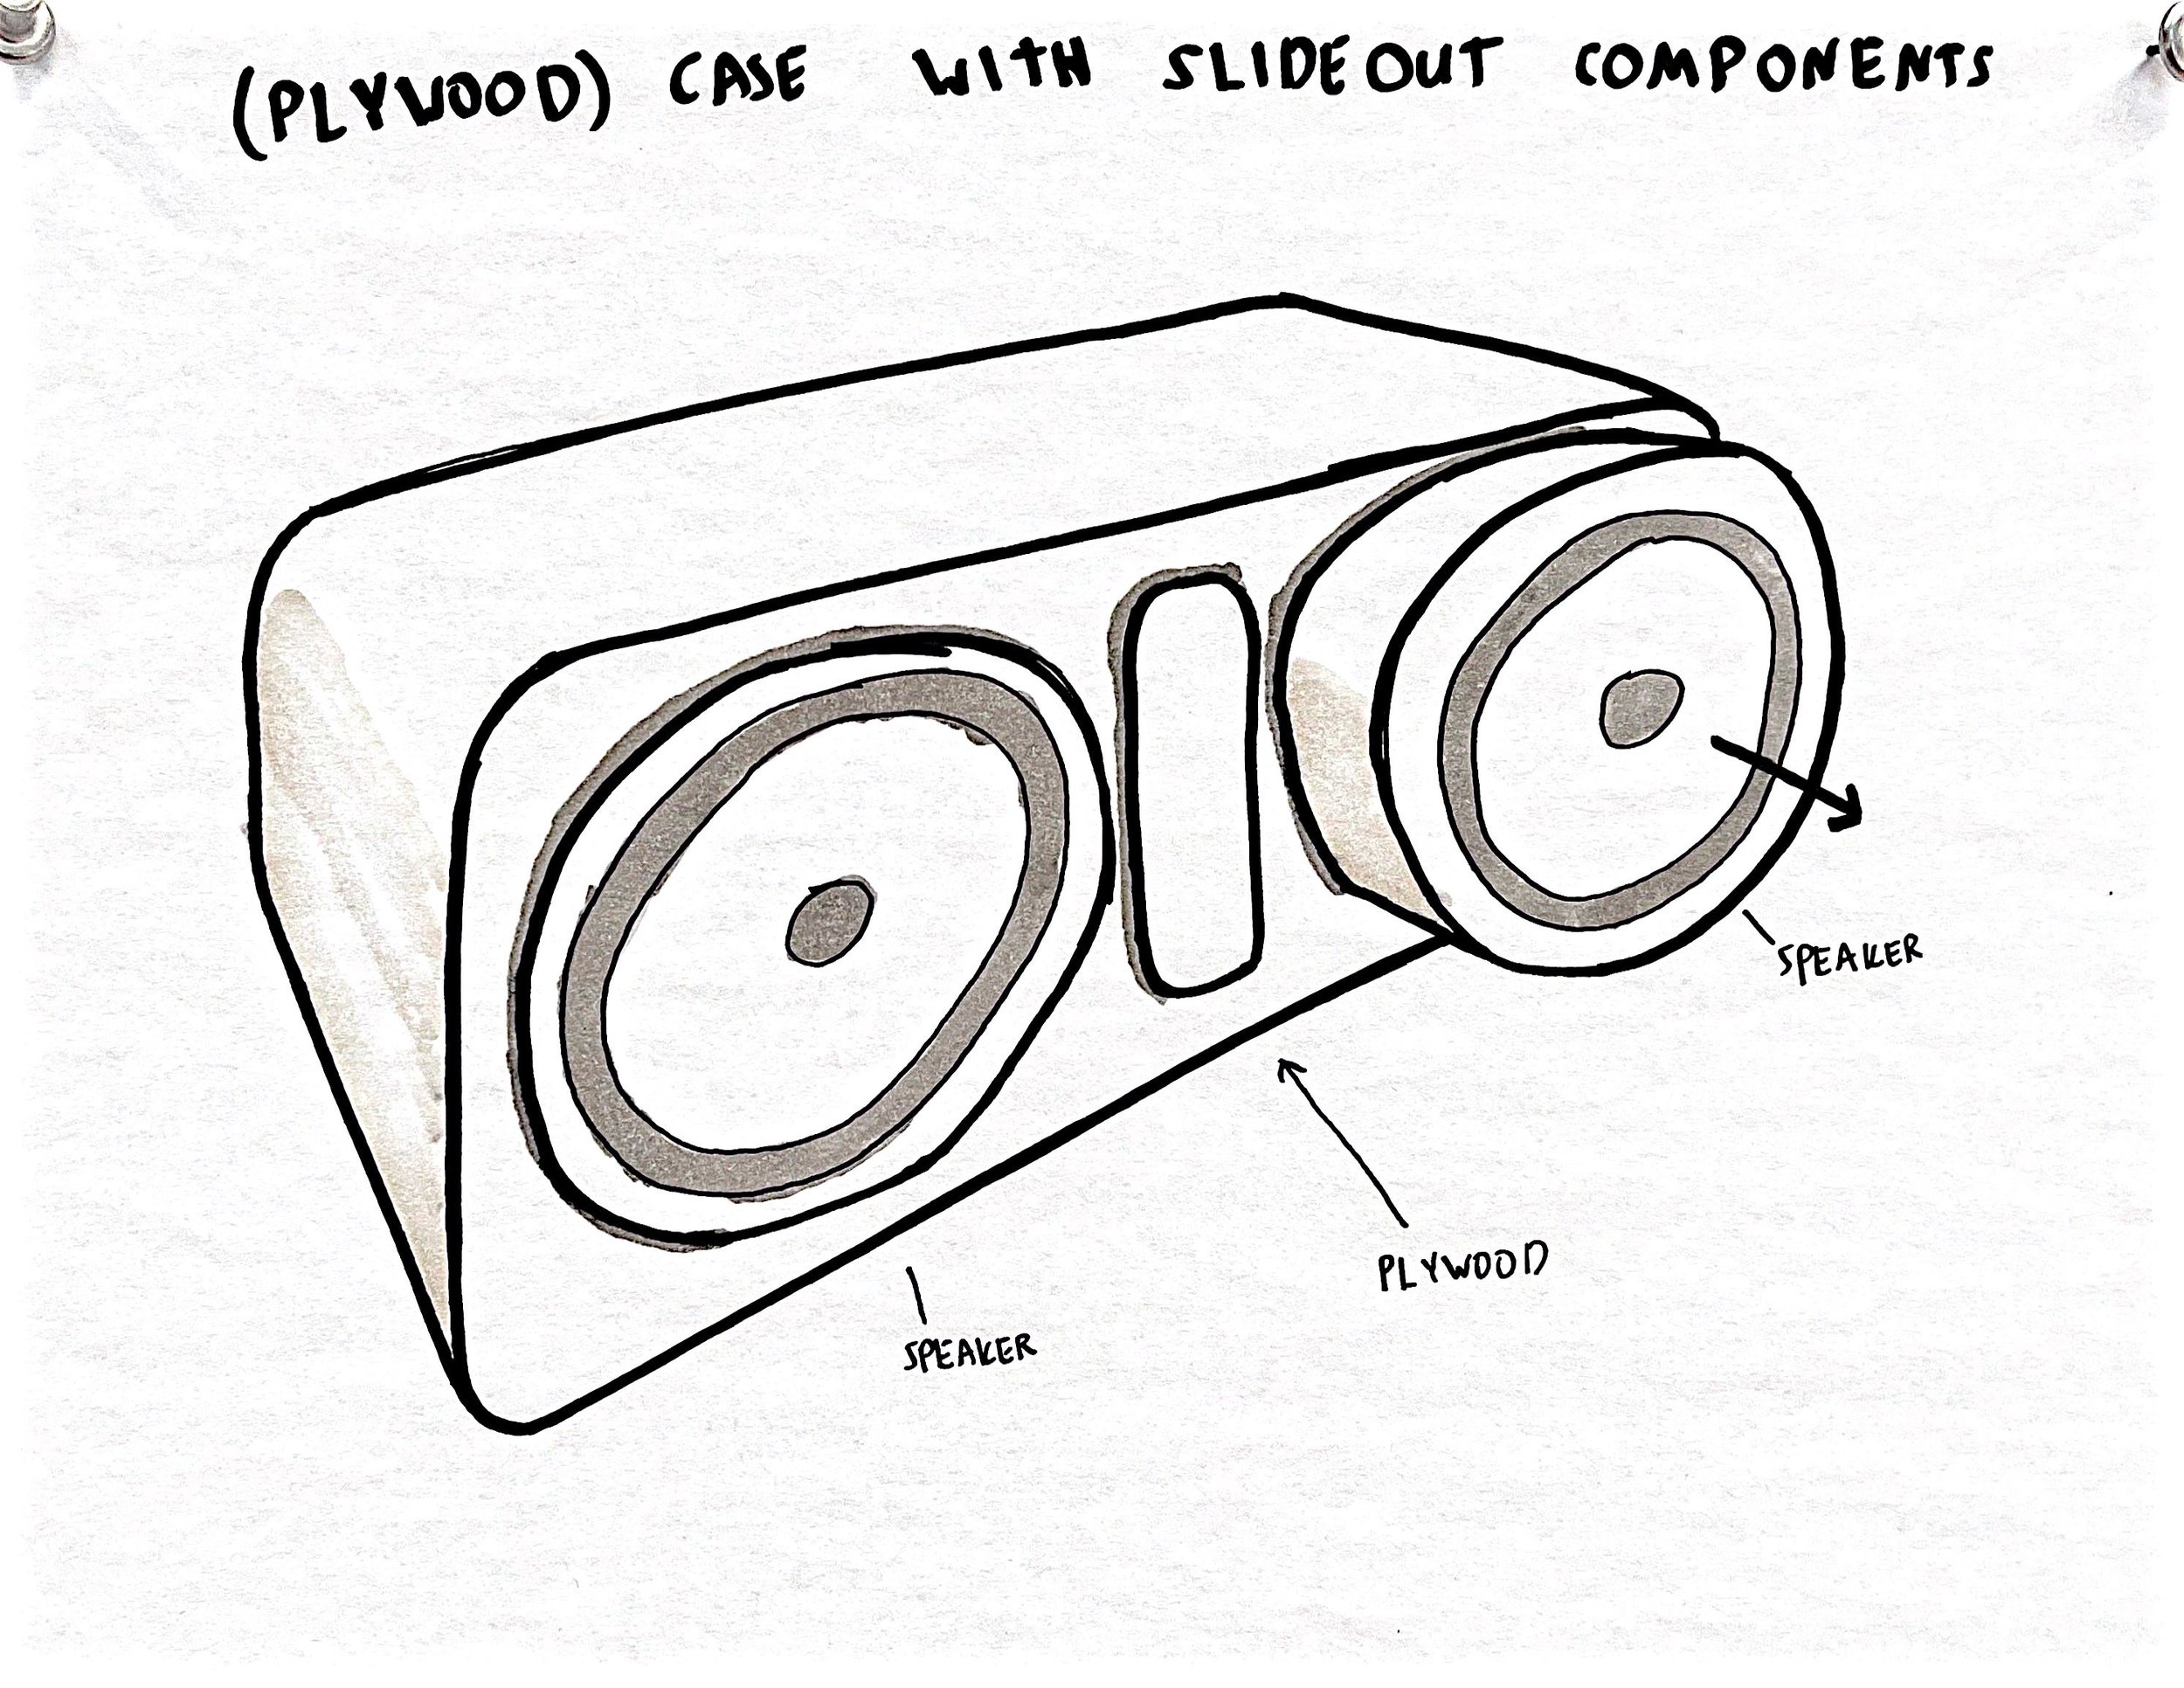 (PLYWOOD) CASE WITH SLIDEOUT COMPONENTS
SPEAKER
PLYWOOD
SPEAKER